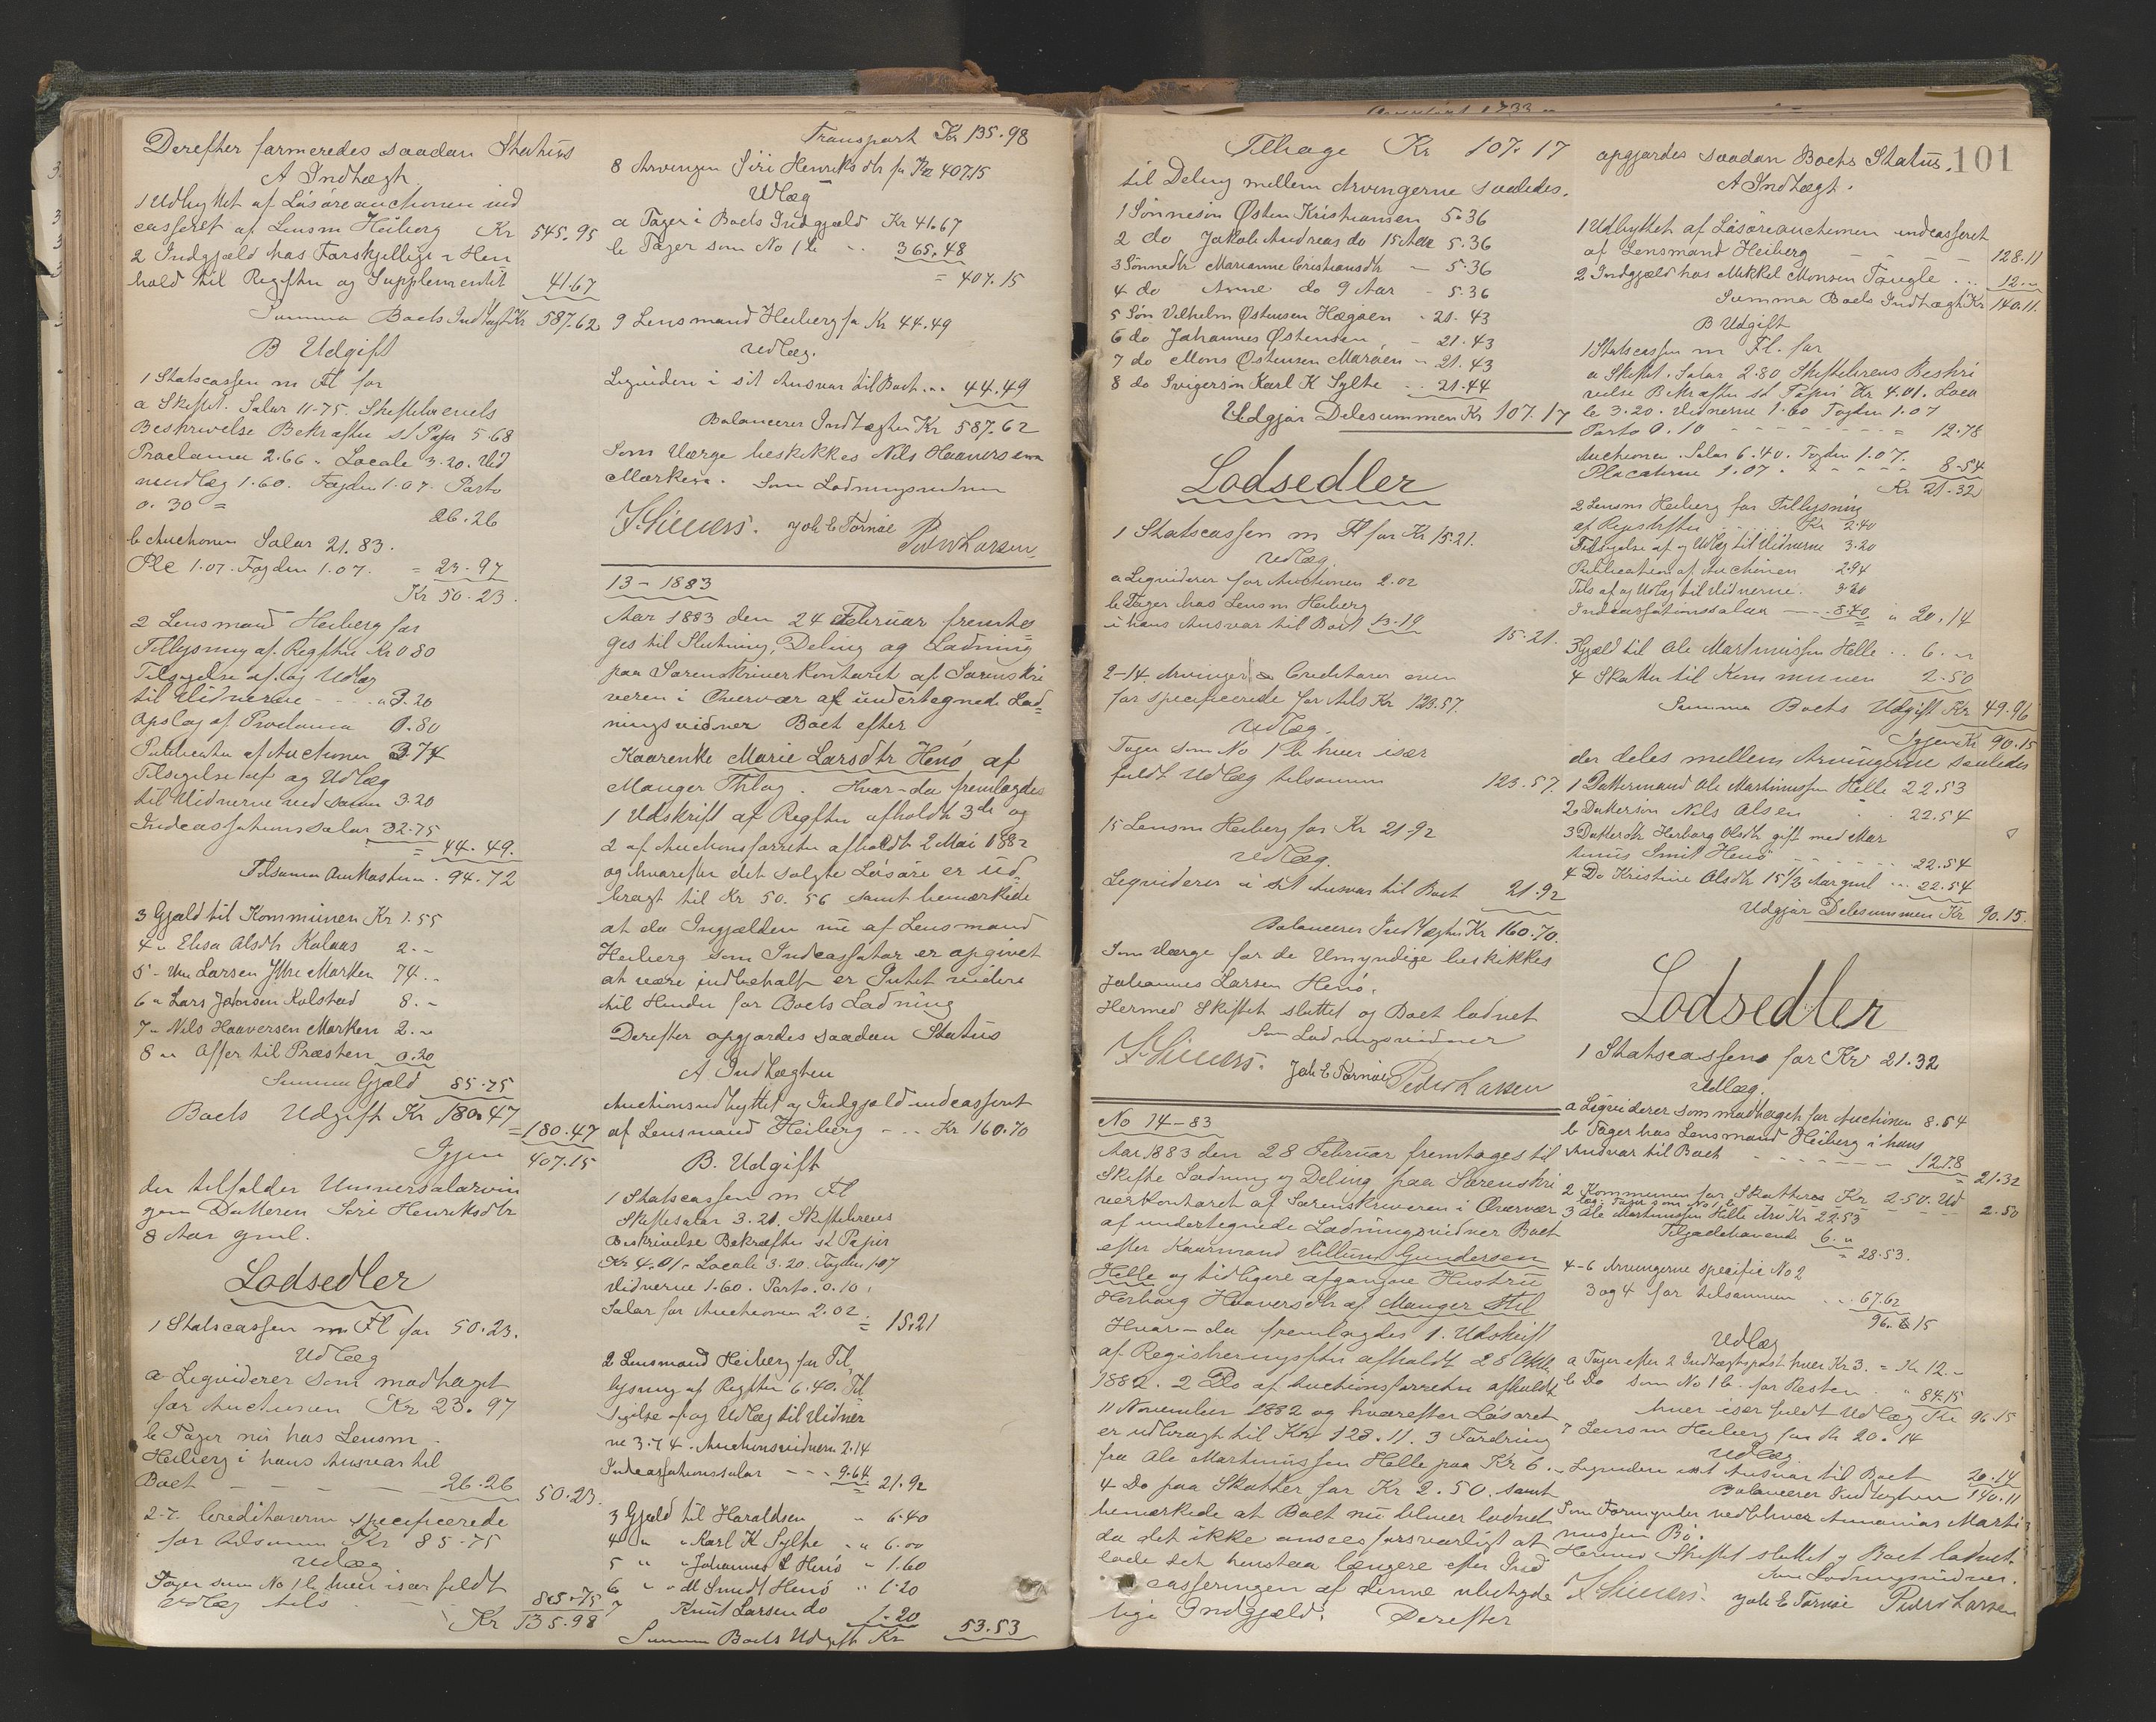 Derefter formeredes saadan Status
A Indtægt.
1 Udbyttet af Løsøreauctionen ind
casseret af Lensm Heiberg Kr 545.95
2 Indgjæld hos Forskjellige i Hen
hold til Regftn og Supplementet 41.67
Summa Boets Indtægt Kr 587.62
B Udgift
1 Statscassen m Fl for
a Skiftet. Salar 11-75. Skiftebrevets
Beskrivelse Bekræftn st Papir 5.68
Proclama 2.66 " Locale 3.20. Vid
neudlæg 1.60. Fogden 1.07. Porto
0.30 = 26.26
b Auctionen Salar 21.83.
Plc 1.07. Fogden 1.07. = 23.97
Kr 50.23.
2 Lensmand Heiberg for
Tillysning af Regftn Kr 0 80
Tilsigelse af og Udlæg
til Vidnerne - - - " 3.20
Opslag af Proclama 0.80
Publicatn af Auctionen 3 74
Tilsigelse af og Udlæg
til Vidnerne ved samme 3.20
Indcassationssalar 32.75
= 44.49.
Tilsammen . 94.72
3 Gjæld til Kommunen Kr 1.55
4 " Elisa Olsdtr Kolaas 2.-
5 - Larsen Ytre Marken 74. -
6 " Lars Johnsen Kolstad 8. -
7 " Nils Haaversen Marken 2. "
8 " Offer til Præsten 0.20
Summa Gjæld 85.75
Boets Udgift Kr 180.47
= 180.47
Igjen 407.15
der tilfalder Universalarvin
gen Datteren Siri Henriksdtr
8 Aar gml.
Lodsedler
1 Statscassen m Fl for 50.23.
Udlæg
a Liqviderer som modtaget
for Auctionen Kr 23.97
b Tager nu hos Lensm.
Heiberg i hans Ansvar til
Boet - - - - 26.26 50.23.
2-7. Creditorerne specificerede
for tilsammen Kr 85-75
Udlæg
Tager som No 1 b hver især fuldt
Udlæg tils 85.75
Kr 135.98
Transport Kr 135.98
8 Arvingen Siri Henriksdtr for Kr 407.15
Udlæg
a Tager i Boets Indgjæld Kr 41.67
b Tager som No 1 b .. 365.48
= 407.15
9 Lensmand Heiberg for Kr 44.49
Udlæg.
Liqviderer i sit Ansvar til Boet .. 44.49
Balancerer Indtægten Kr 587.62
Som Værge beskikkes Nils Haaversen
Marken. Som Lodningsvidner
Joh E Tornöe Peder Larsen
13 - 1883
Aar 1883 den 24 Februar fremto
ges til Slutning, Deling og Lodning
paa Sorenskriverkontoret af Sorenskri
veren i Overvær af undertegnede Lod
ningsvidner Boet efter
Kaarenke Marie Larsdtr Henö af
Manger Thlag. Hvor - da fremlagdes
1 Udskrift af Regftn afholdt 3de og
2 af Auctionsforretn afholdt 2 Mai 1882
og hvorefter det solgte Løsøre er ud
bragt til Kr 50.56 samt bemærkede
at da Ingjælden nu af Lensmand
Heiberg som Indcassator er opgivet
at være indbetalt er Intet videre
til Hinder for Boets Lodning
Derefter opgjordes saadan Status
A Indtægten
Auctionsudbyttet og Indgjæld indcasseret
af Lensmand Heiberg - .. Kr 160.70
B. Udgift
1 Statscassen m Fl
Skiftesalar 3.21. Skiftebrevs
Beskrivelse Bekræftn st Papir
Kr 4.01 - Locale 3.20. Fogden 1.07
Vidnerne 1.60. Porto. 0.10.
Salar for Auctionen 2.02.
= 15.21
2 Lensmand Heiberg for Til
lysning af Regftn 6.40. Til
sigelse af og Udlæg til Vidner
ne 3.74. Auctionsvidnern 2.14
Indcassationssalar - - - 9.64 = 21.92
3 Gjæld til Haraldsen " 6.40
4 " " Karl K Sylte " " 6.00
5 " " Johannes L Henö " 1.60
6 " " M Smidt Henö " 1.20
7 Knut Larsen do 1.20
Summa Boets Udgift Kr 53.53
Tilbage Kr 107.17
til Deling mellem Arvingerne saaledes.
1 Sönnesön Østen Kristiansen 5.36
2 do Jakob Andreas do 15 Aar 5.36
3 Sönnedtr Marianne Cristiansdtr - 5.36
4 do Anne do 9 Aar - 5.36
5 Sön Vilhelm Østensen Hægöen - 21.43
6 do Johannes Østensen - 21.43
7 do Mons Østensen Maröen - 21.43
8 do Svigersön Karl K Sylte .. 21.44
Udgjör Delesummen Kr 107.17
Lodsedler
1 Statscassen m Fl for Kr 15.21.
Udlæg
a Liqviderer for Auctionen 2.02
b Tager hos Lensm Heiberg
i hans Ansvar til Boet 13.19
15.21.
2-14 Arvinger & Creditorer oven
for specificerede for tils Kr 123.57.
Udlæg.
Tager som No 1 b hver især
fuldt Udlæg tilsammen 123.57.
15 Lensm Heiberg for Kr 21.92
Udlæg.
Liqviderer i sit Ansvar til Boet 21.92
Balancerer Indtægten Kr 160.70.
Som Værge for de Umyndige beskikkes
Johannes Larsen Henö.
Hermed Skiftet sluttet og Boet lodnet
Som Lodningsvidner
Joh E Tornöe Peder Larsen
No 14-83
Aar 1883 den 28 Februar fremtoges til
Skifte Lodning og Deling paa Sorenskri
verkontoret af Sorenskriveren i Overvær
af undertegnede Lodningsvidner Boet
efter Kaarmand Villum Gundersen
Helle og tidligere afgangne Hustru
Herborg Haaversdtr af Manger Thl
Hvor - da fremlagdes 1. Udskrift
af Registreringsftn afholdt 28 Oktb
1882. 2 Do af Auctionsforretn afholdt
11 November 1882 og hvorefter Løsøret
er udbragt til Kr 128.11. 3 Fordring
fra Ole Martinussen Helle paa Kr 6. -
4 Do paa Skatter for Kr 2.50. samt
bemærkede at Boet nu bliver lodnet
da det ikke ansees forsvarligt at
lade det henstaa længere efter Ind
casseringen af denne ubetyde
lige Indgjæld. Derefter
opgjordes saadan Boets Status. 101
A Indtægt.
1 Udbyttet af Løsøreauctionen indcasseret
af Lensmand Heiberg - - - - 128.11
2 Indgjæld hos Mikkel Monsen Tougle .. 12. "
Summa Boets Indtægt Kr 140.11.
B Udgift
1 Statscassen m Fl. for
a Skiftet. Salar 2.80 Skiftebrevens Beskri
velse Bekræftn st Papir Kr 4.01. Loca
le 3.20. Vidnerne 1.60 Fogden 1.07
Porto 0.10 - - - - - - - = 12.78
Auctionen. Salar 6.40. Fogden 1.07.
Placaterne 1.07. - - - - 8.54
Kr 21.32
2 Lensm Heiberg for Tillysning
af Registrftn ...... Kr 2.40
Tilsigelse af og Udlæg til Vidnerne 3.20
Publication af Auctionen 2.94
Tils af og Udlæg til Vidnerne. 3.20
Indcassationssalar - - 8.40 " 20.14
3 Gjæld til Ole Martinussen Helle .. 6. "
4 Skatter til Kommunen 2.50
Summa Boets Udgift Kr 49.96
Igjen Kr 90.15
der deles mellem Arvingerne saaledes
1 Dattermand Ole Martinussen Helle 22.53
2 Dattersön Nils Olsen .. 22.54
3 Datterdtr Herborg Olsdtr gift med Mar
tinus Smit Henö - - - - .. 22.54
4 Do Kristine Olsdtr 15 1/2 Aar gml ... 22.54
Udgjör Delesummen Kr 90.15.
Lodsedler
1 Statscassen for Kr 21.32
Udlæg.
a Liqviderer som modtaget for Auctionen 8.54
b Tager hos Lensmand Heiberg i hans
Ansvar til Boet - - - - - 12.78 = 21.32
2 Kommunen for Skatter Kr 2.50. Ud
læg. Tager som No 1 b - - - 2.50
3 Ole Martinussen Helle Arv Kr 22.53
Tilgodehavende 6. "
= 28.53.
4-6 Arvingerne specific No 2
3 og 4 for tilsammen .. 67.62
96.15
Udlæg
a Tager efter 2 Indtægtspost hver Kr 3. = Kr 12. -
b Do som No 1 b. for Resten " 84.15
hver især fuldt Udlæg Kr 96.15
7 Lensm Heiberg for Kr 20.14
Udlæg
Liqviderer i sit Ansvar til Boet 20.14
Balancerer Indtægten 140.11
Som Formynder vedbliver Annanias Marti
nussen Bö.
Hermed Skiftet sluttet og Boet lodnet.
Som Lodningsvidner.
Joh E Tornöe Peder Larsen